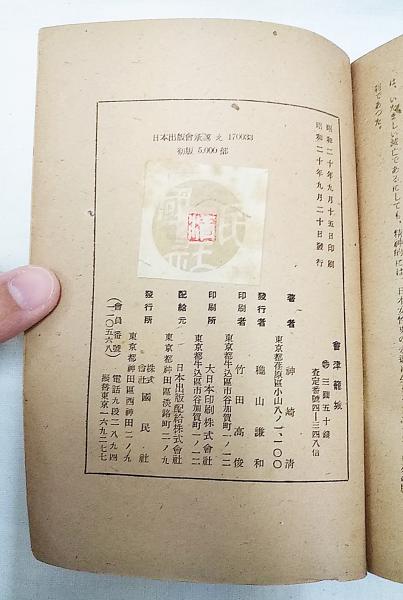 日本出版會承認 え 170033
初版 5,000 部
昭和二十年九月十五日印刷
昭和二十年九月二十日發行
會津籠城
三圓五十錢
査定番號四—三四八信
著者 神崎清
東京都荏原區小山八ノ一、一〇〇
發行者 穐山謙和
東京都牛込區市谷加賀町一ノ一二
印刷者 竹田高俊
東京都牛込區市谷加賀町一ノ一二
印刷所 大日本印刷株式會社
東京都神田區淡路町二ノ九
配給元 日本出版配給株式會社
東京都神田區西神田二ノ九
發行所 株式會社 國民社
電話九段二八九四
振替東京一六九二七七
(會員番號一二〇五六八)
は、いたましい滅亡であるにしても、精神的には、日本女性史の
利であつた。